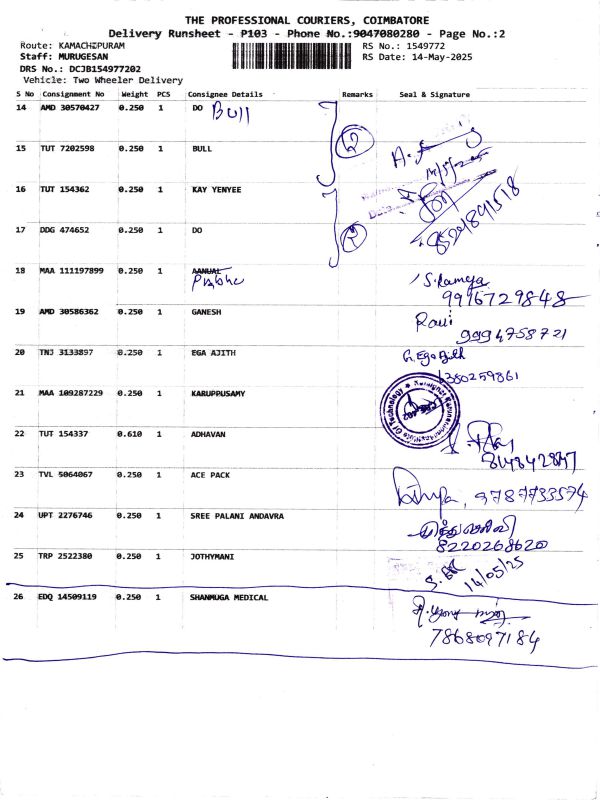 THE PROFESSIONAL COURIERS, COIMBATORE
Delivery Runsheet - P103 - Phone No.:9047080280 - Page No.:2
Route: KAMACHIPURAM
RS No.: 1549772
Staff: MURUGESAN
RS Date: 14-May-2025
DRS No.: DCJB154977202
Vehicle: Two Wheeler Delivery
S No Consignment No Weight PCS Consignee Details Remarks Seal & Signature
14 AMD 30570427 0.250 1 DO Bull
15 TUT 7202598 0.250 1 BULL
16 TUT 154362 0.250 1 KAY YENYEE
17 DDG 474652 0.250 1 DO
18 MAA 111197899 0.250 1 AANUAL
Prabhu
S. Ramya
9916729848
19 AMD 30586362 0.250 1 GANESH
Ravi
9994758721
20 TNJ 3133897 0.250 1 EGA AJITH G. Ega Ajith
6380259861
21 MAA 109287229 0.250 1 KARUPPUSAMY
22 TUT 154337 0.610 1 ADHAVAN
23 TVL 5064067 0.250 1 ACE PACK
9787733574
24 UPT 2276746 0.250 1 SREE PALANI ANDAVRA
8220268620
25 TRP 2522380 0.250 1 JOTHYMANI
14/05/25
26 EDQ 14509119 0.250 1 SHANMUGA MEDICAL
7868097184